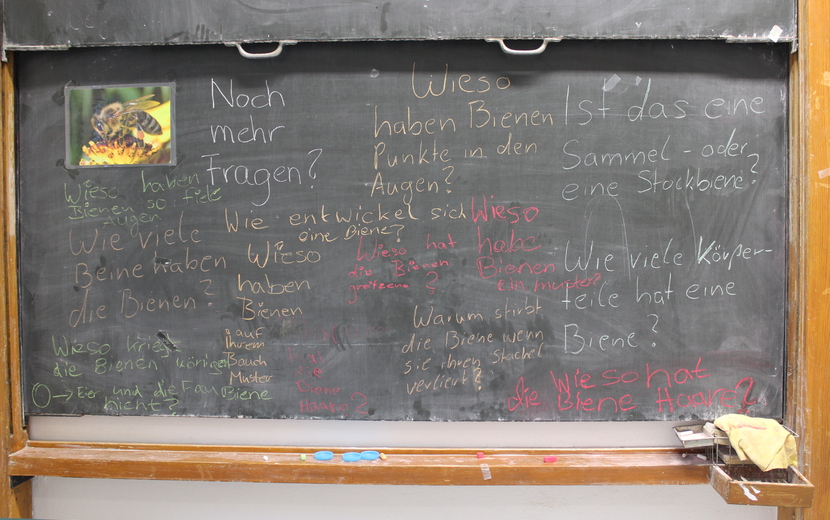 Noch
mehr
Fragen?
Wieso
haben Bienen
Punkte in den
Augen?
Ist das eine
Sammel - oder
eine Stockbiene?
Wieso haben
Bienen so fiele
Augen
Wie entwickel sich
eine Biene?
Wie viele
Beine haben
die Bienen?
Wieso
haben
Bienen
auf
ihrem
Bauch
Muster
Wieso hat
die Bienen
?
Wieso
habe
Bienen
ein muster?
Wie viele Körper-
teile hat eine
Biene?
Warum stirbt
die Biene wenn
sie ihren Stachel
verliert?
Wieso kriegt
die Bienen königen
Eier und die Fau Biene
nicht?
Biene
Haare?
Wieso hat
die Biene Haare?